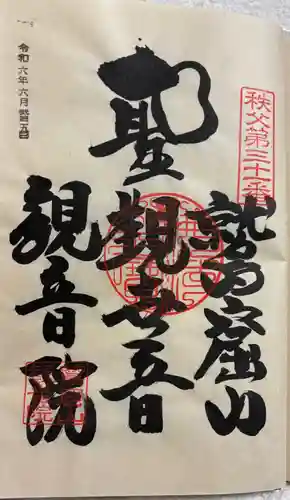 秩父第三十一番
鷲窟山
聖觀世音
観音院
令和六年六月